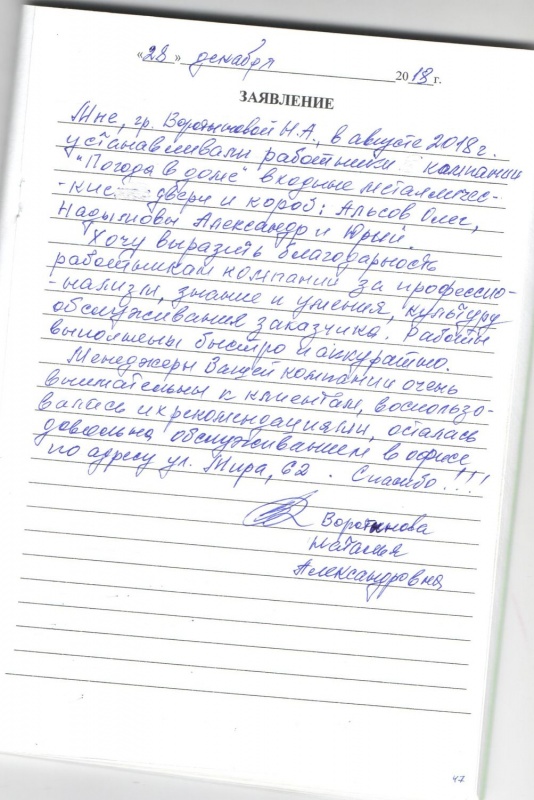 «28» декабря 2018 г.
ЗАЯВЛЕНИЕ
Мне, гр. Воротынцевой Н.А., в августе 2018 г.
устанавливали работники кампании
"Погода в доме" входные металличес-
-кие двери и короб: Альсов Олег,
Александр и Юрий.
Хочу выразить благодарность
работникам компании за профессио-
-нализм, знание и умения, культуру
обслуживания заказчика. Работы
выполнены быстро и аккуратно.
Менеджеры Вашей компании очень
внимательны к клиентам, воспользо-
валась их рекомендациями, осталась
довольна обслуживанием в офисе
по адресу ул. Мира, 62. Спасибо!!!
Наталья
Александровна
47